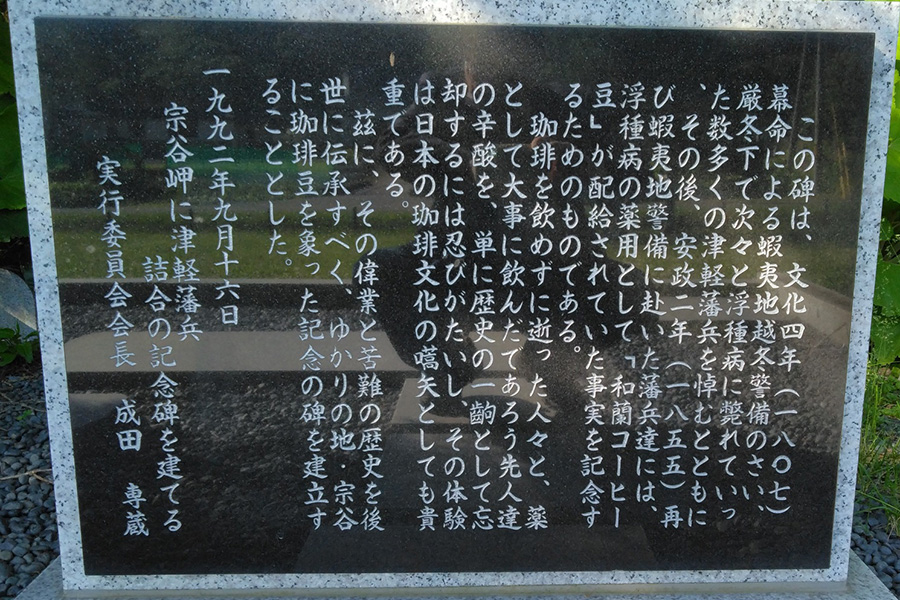 この碑は、文化四年（一八〇七）
幕命による蝦夷地越冬警備のさい、
厳冬下で次々と浮種病に斃れていっ
た数多くの津軽藩兵を悼むとともに
、その後、安政二年（一八五五）再
び蝦夷地警備に赴いた藩兵達には、
浮種病の薬用として「和蘭コーヒー
豆」が配給されていた事実を記念す
るためのものである。
珈琲を飲めずに逝った人々と、薬
として大事に飲んだであろう先人達
の辛酸を、単に歴史の一齣として忘
却するには忍びがたいし、その体験
は日本の珈琲文化の嚆矢としても貴
重である。
茲に、その偉業と苦難の歴史を後
世に伝承すべく、ゆかりの地・宗谷
に珈琲豆を象った記念の碑を建立す
ることとした。
一九九二年九月十六日
宗谷岬に津軽藩兵
詰合の記念碑を建てる
実行委員会会長 成田 専蔵